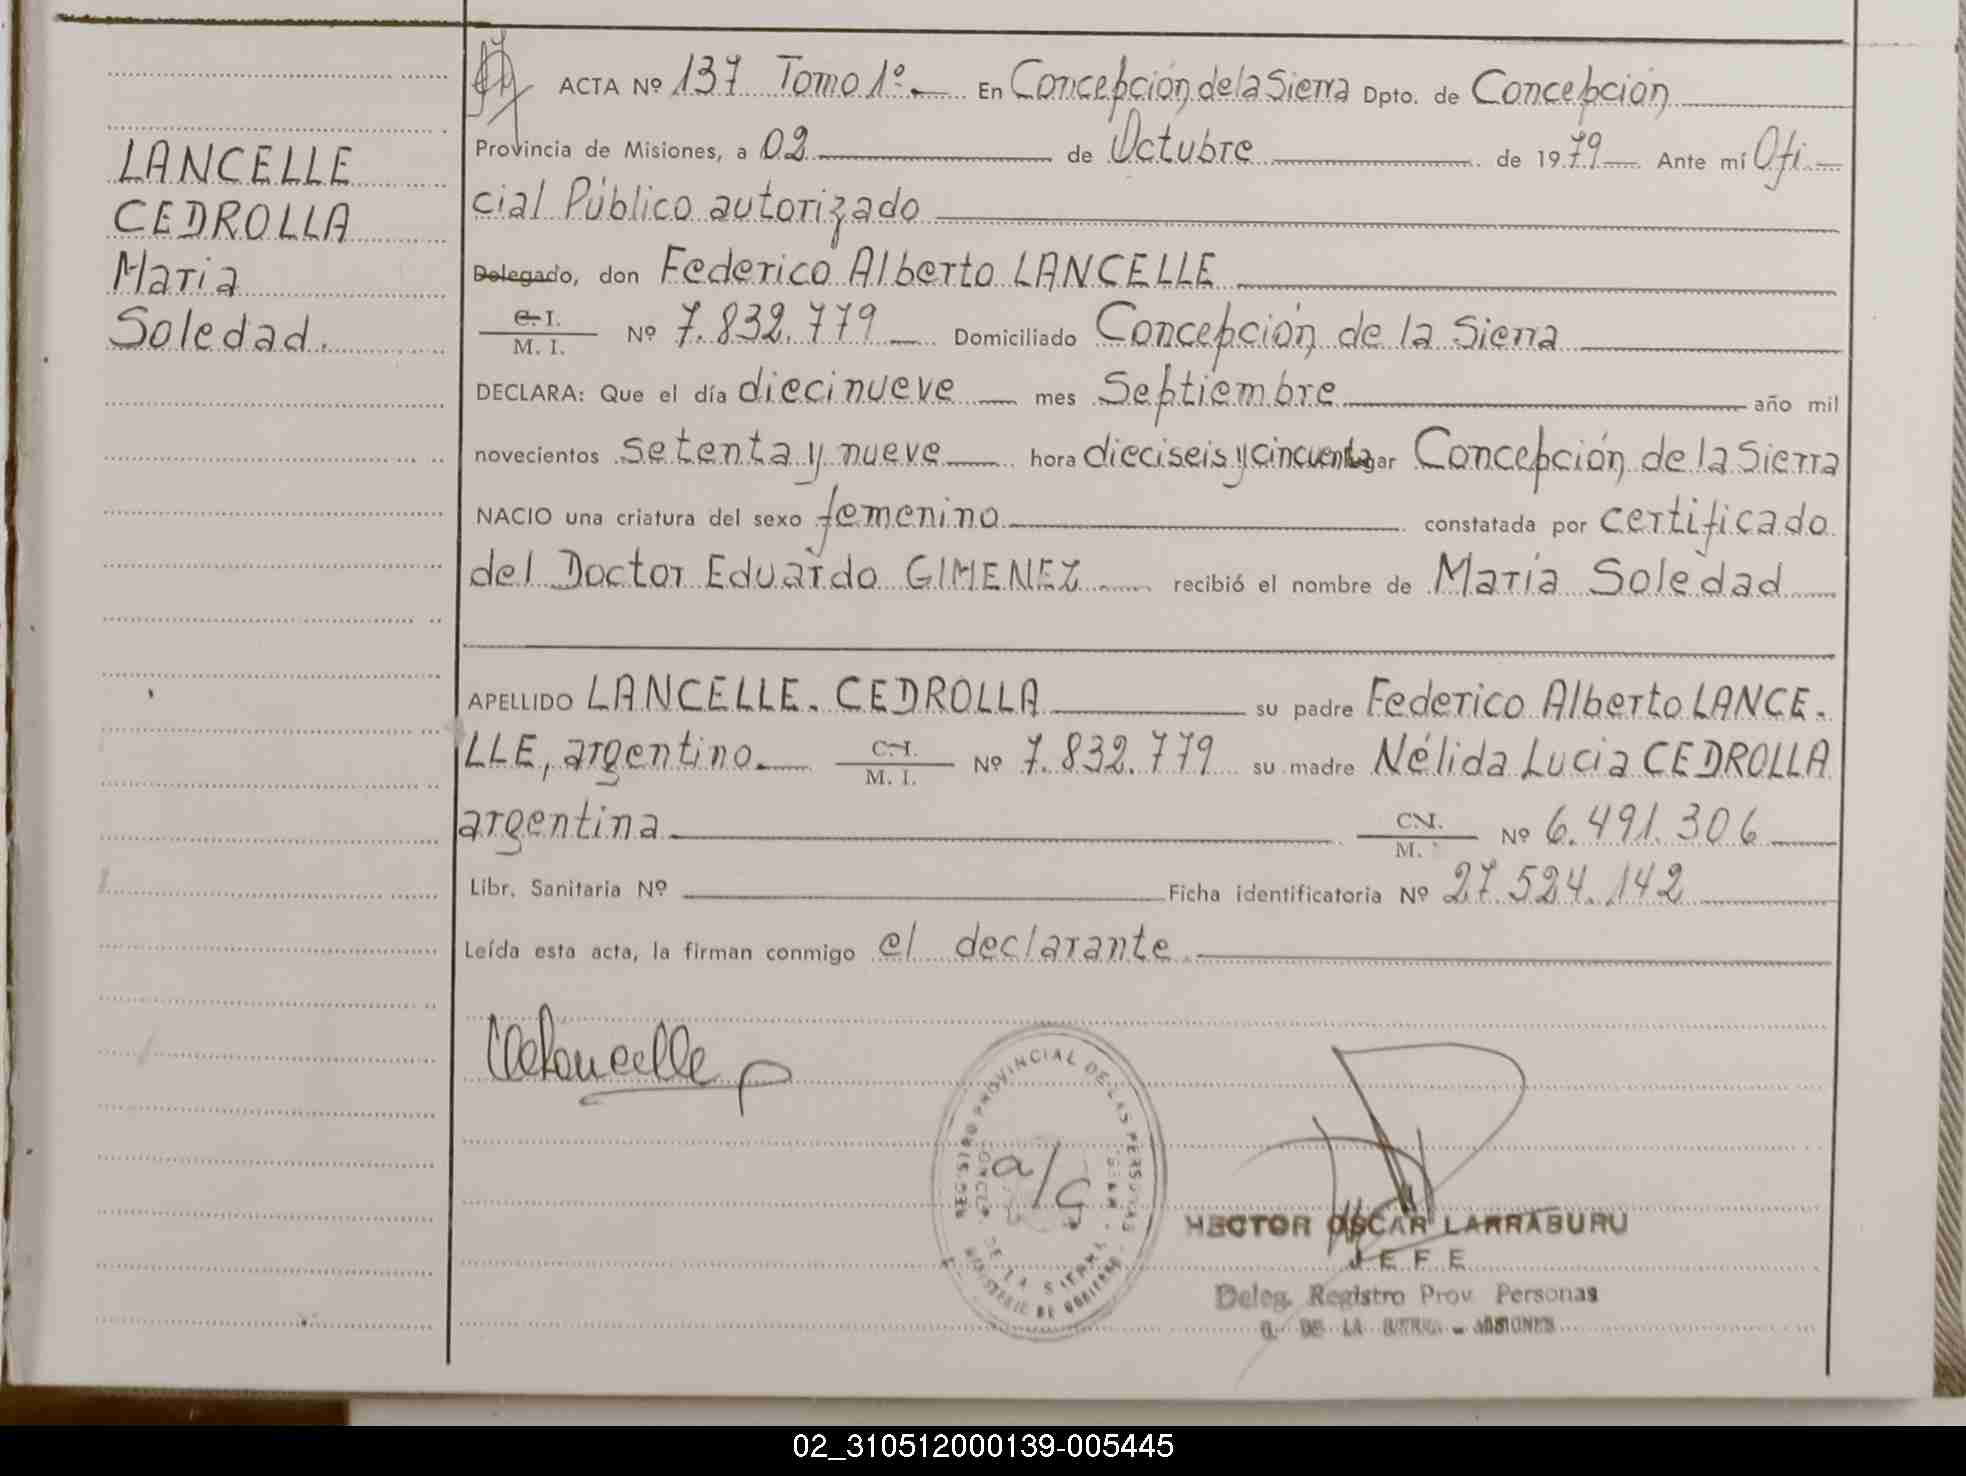 LANCELLE
CEDROLLA
Maria
Soledad.
ACTA Nº 137 Tomo 1º.- En Concepción de la Sierra Dpto. de Concepción
Provincia de Misiones, a 02 de Octubre de 1979 Ante mí Ofi-
cial Público autorizado
Delegado, don Federico Alberto LANCELLE
C. I.
M. I. Nº 7.832.779 Domiciliado Concepción de la Sierra
DECLARA: Que el día diecinueve mes Septiembre año mil
novecientos setenta y nueve hora dieciseis y cincuenta gar Concepción de la Sierra
NACIO una criatura del sexo femenino constatada por certificado
del Doctor Eduardo GIMENEZ recibió el nombre de María Soledad
APELLIDO LANCELLE. CEDROLLA su padre Federico Alberto LANCE.
LLE, argentino. C. I.
M. I. Nº 7.832.779 su madre Nélida Lucia CEDROLLA
argentina C. I.
M. Nº 6.491.306
Libr. Sanitaria Nº Ficha identificatoria Nº 27.524.142
Leída esta acta, la firman conmigo el declarante.
REGISTRO PROVINCIAL DE LAS PERSONAS
DE LA SIERRA
MINISTERIO DE GOBIERNO
a/c
HECTOR OSCAR LARRABURU
JEFE
Deleg. Registro Prov. Personas
C. DE LA SIERRA - MISIONES
02_310512000139-005445